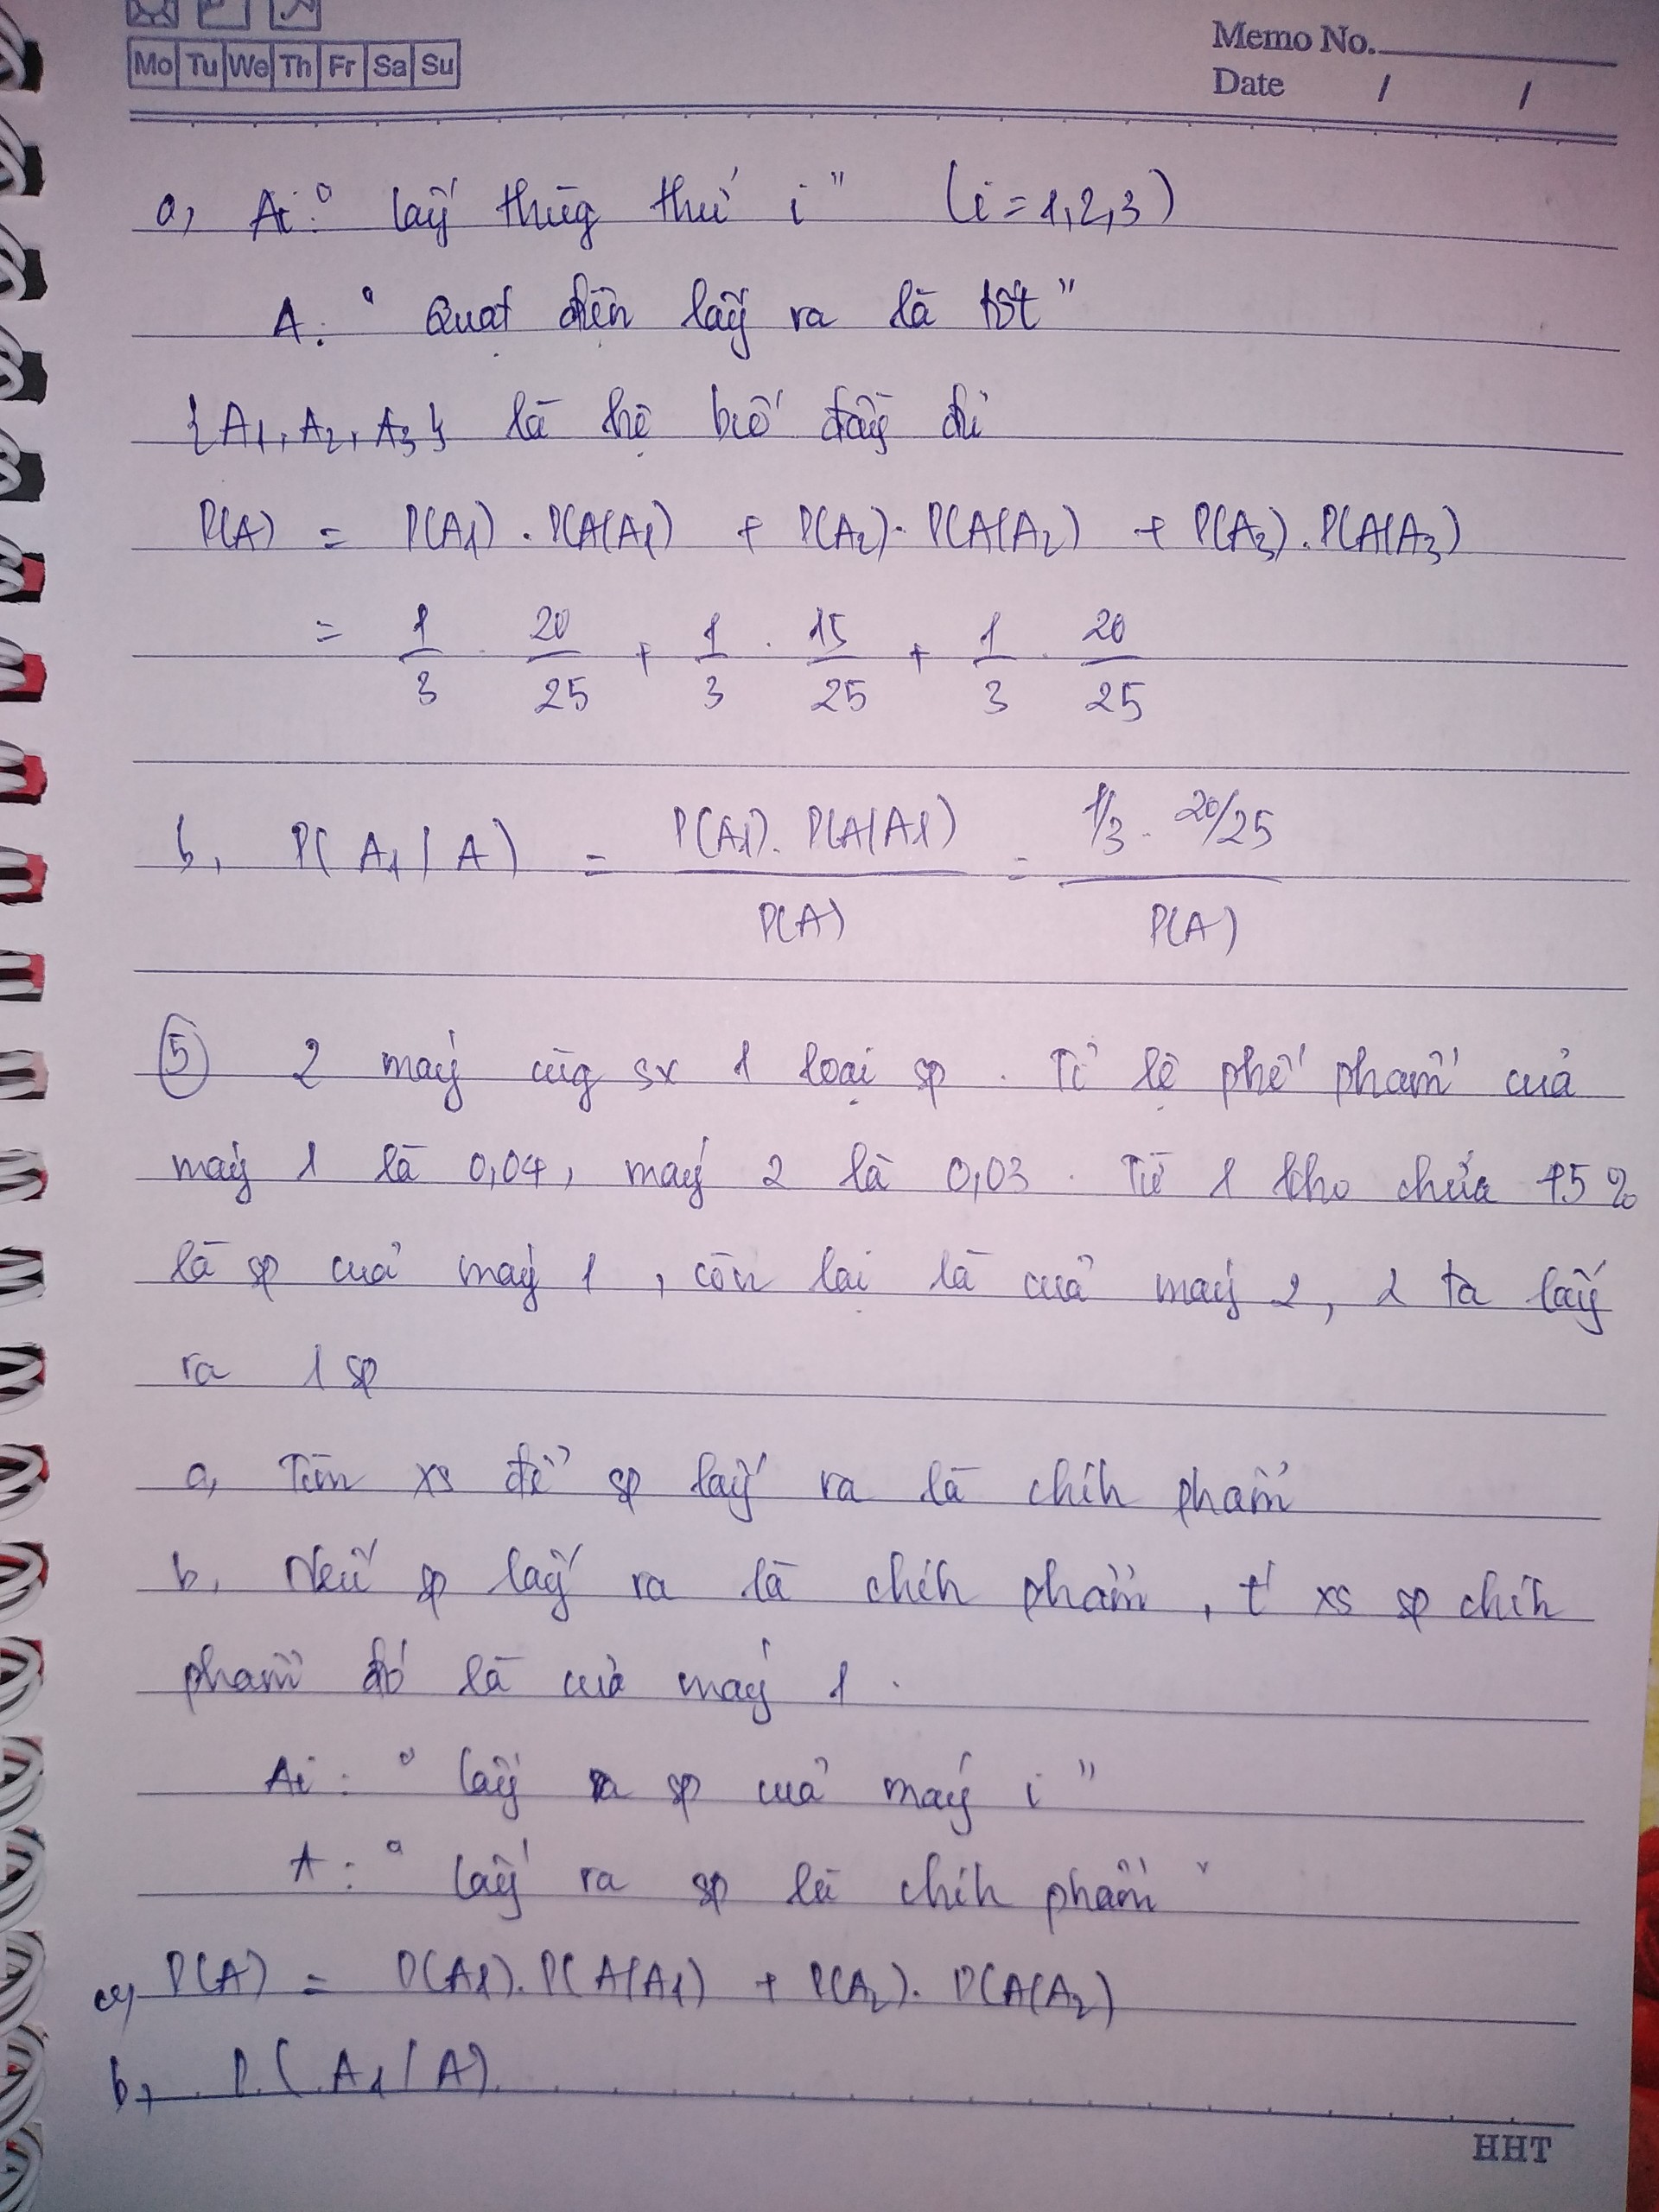 Mo Tu We Th Fr Sa Su
Memo No.
Date / /
a, Ai: " lấy thùg thứ i " (i = 1,2,3)
A: " Quạt điện lấy ra là tốt "
{A1, A2, A3} là hệ b/cố đầy đủ
P(A) = P(A1) . P(A/A1) + P(A2) . P(A/A2) + P(A3) . P(A/A3)
= 1/3 . 20/25 + 1/3 . 15/25 + 1/3 . 20/25
b, P( A1 / A ) = P(A1) . P(A/A1) / P(A) = 1/3 . 20/25 / P(A)
⑤ 2 máy cùg sx 1 loại sp . Tỉ lệ phế phẩm của
máy 1 là 0,04 , máy 2 là 0,03 . Từ 1 kho chứa %
là sp của máy 1 , còn lại là của máy 2 , ta lấy
ra 1 sp
a, Tìm xs để sp lấy ra là chíh phẩm
b, Nếu sp lấy ra là chíh phẩm , t' xs sp chíh
phẩm đó là của máy 1 .
Ai : " lấy ra sp của máy i "
A : " lấy ra sp là chíh phẩm "
a, P(A) = P(A1) . P(A/A1) + P(A2) . P(A/A2)
b, P( A1 / A)
HHT